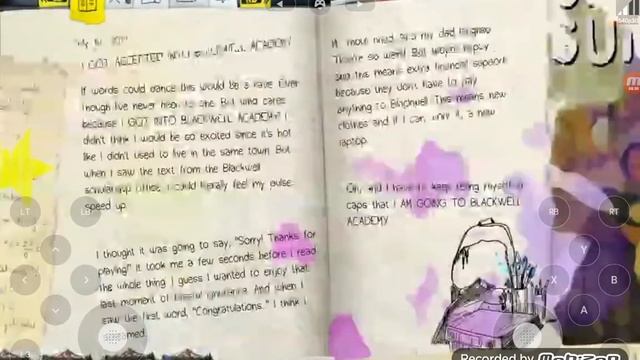 I GOT ACCEPTED INTO ACADEMY
If words could dance this would be a rave. Even
though I've never been to one. But who cares
because I GOT INTO BLACKWELL ACADEMY! I
didn't think I would be so excited since it's not
like I didn't used to live in the same town. But
when I saw the text from the Blackwell
scholarship office, I could literally feel my pulse
speed up.
I thought it was going to say, "Sorry! Thanks for
playing!" It took me a few seconds before I read
the whole thing. I guess I wanted to enjoy that
last moment of blissful ignorance. And when I
saw the first word, "Congratulations." I think I
my dad
They're so
and this means extra financial support
because they don't have to pay
anything to Blackwell. This means new
clothes and if I can it, a new
laptop.
Oh, and I have to keep telling myself in
caps that I AM GOING TO BLACKWELL
ACADEMY
LT
LB
RB
RT
Y
X
B
A
Recorded by
Mobizen